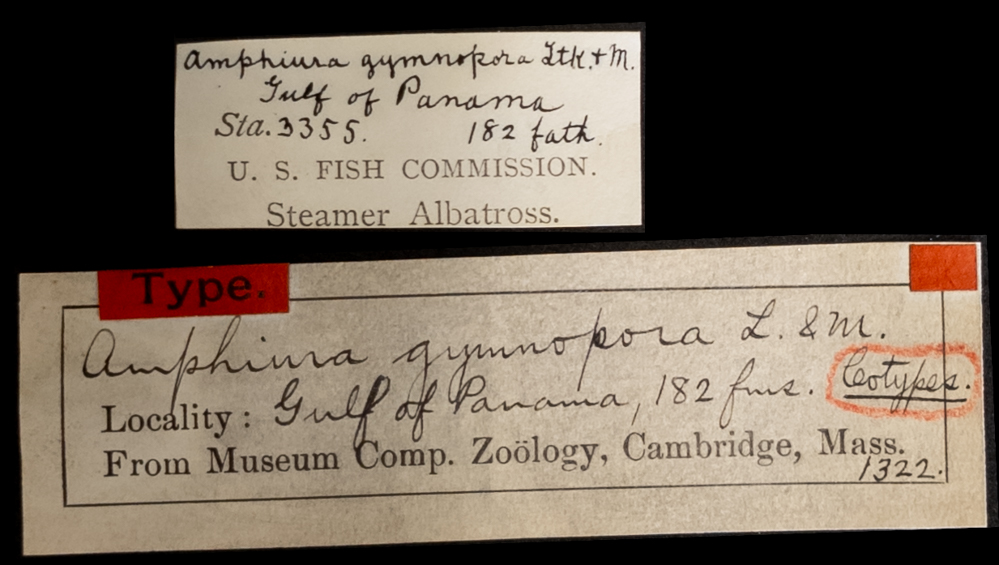 Amphiura gymnopora Ltk. & M.
Gulf of Panama
Sta. 3355. 182 fath.
U. S. FISH COMMISSION.
Steamer Albatross.
Type.
Amphiura gymnopora L. & M.
Cotypes.
Locality: Gulf of Panama, 182 fms.
From Museum Comp. Zoölogy, Cambridge, Mass.
1322.